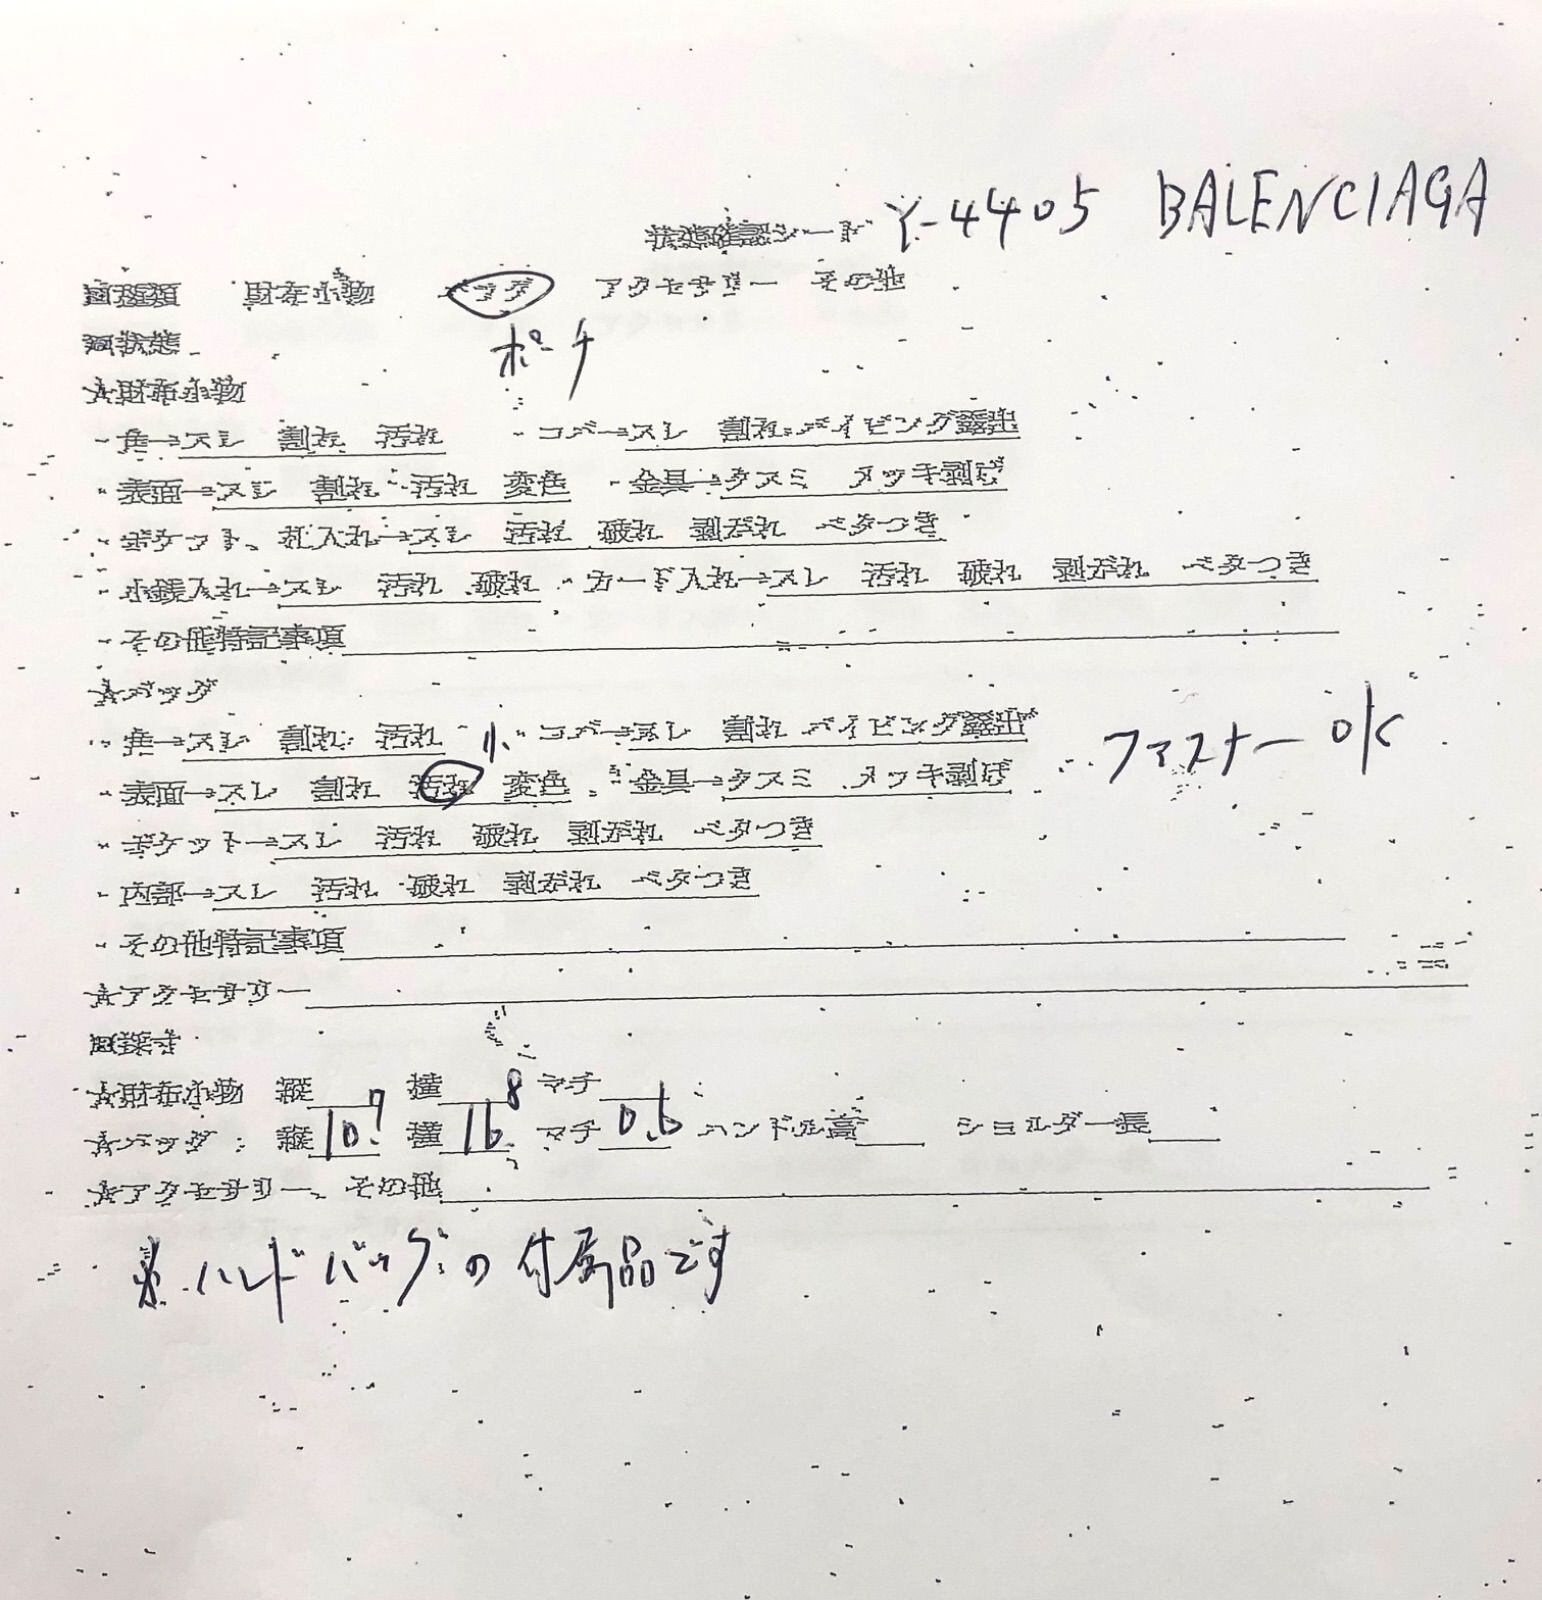 状態確認シート Y-4405 BALENCIAGA
■種類 財布小物 バッグ アクセサリー その他
ポーチ
■状態
★財布小物
・角→スレ 割れ 汚れ ・コバ→スレ 割れ パイピング露出
・表面→スレ 割れ 汚れ 変色 ・金具→クスミ メッキ剥げ
・ポケット、札入れ→スレ 汚れ 破れ 剥がれ ベタつき
・小銭入れ→スレ 汚れ 破れ ・カード入れ→スレ 汚れ 破れ 剥がれ ベタつき
・その他特記事項
★バッグ
・角→スレ 割れ 汚れ 小 ・コバ→スレ 割れ パイピング露出
・表面→スレ 割れ 汚れ 変色 ・金具→クスミ メッキ剥げ ファスナー OK
・ポケット→スレ 汚れ 破れ 剥がれ ベタつき
・内部→スレ 汚れ 破れ 剥がれ ベタつき
・その他特記事項
★アクセサリー
■採寸
★財布小物 縦 横 マチ
★バッグ 縦 10.7 横 16.8 マチ 0.6 ハンドル高 ショルダー長
★アクセサリー、その他
※ハンドバッグの付属品です